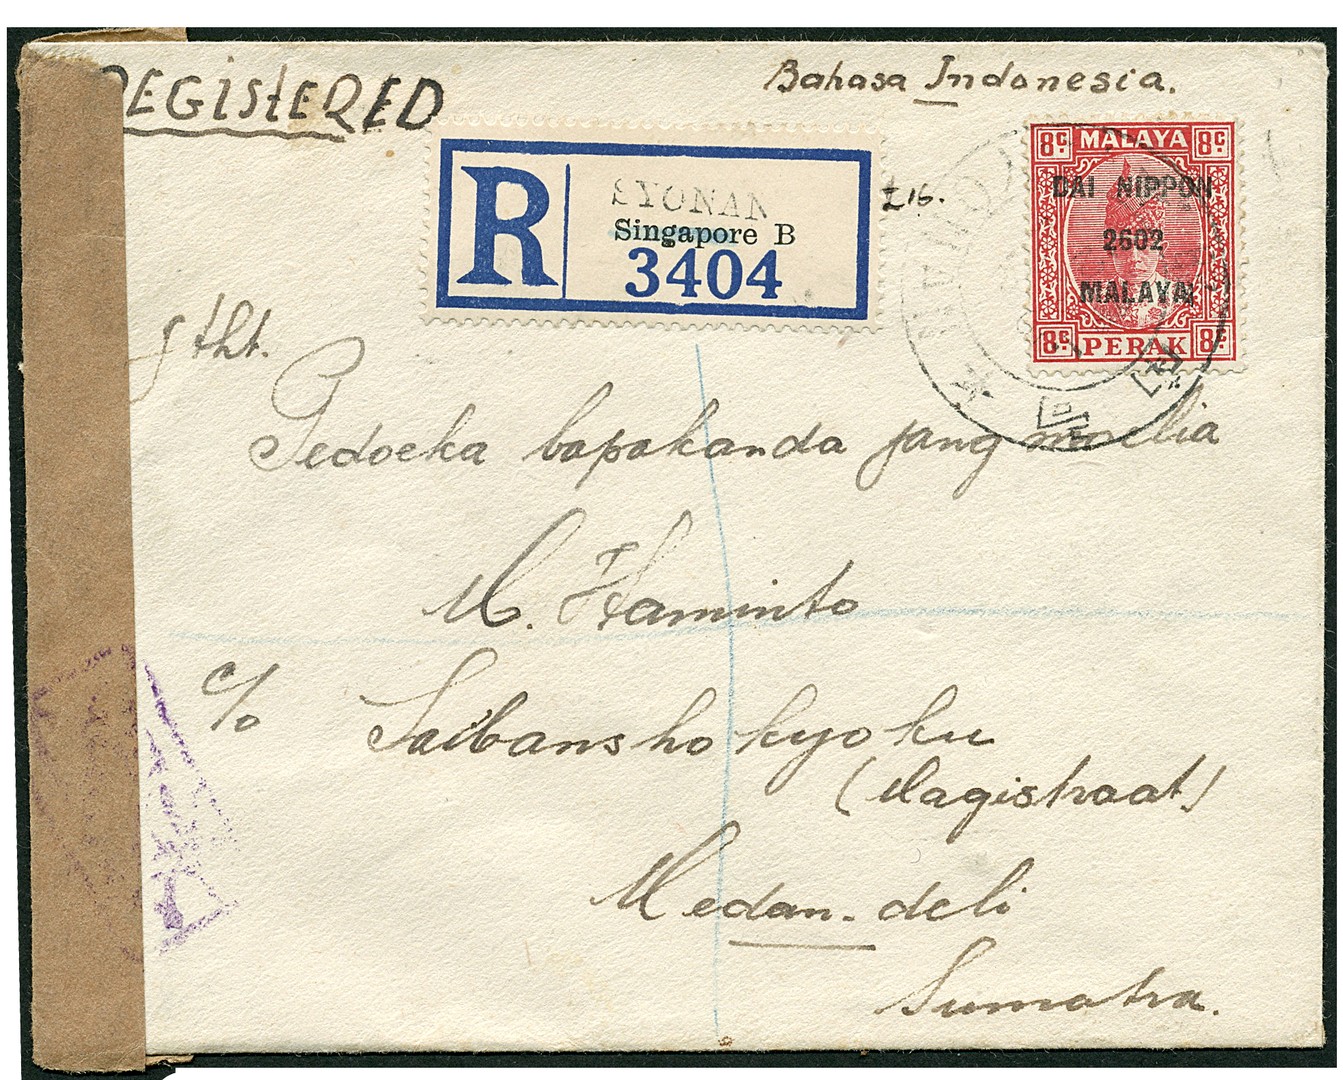 REGISTERED
Bahasa Indonesia.
R
SYONAN
Singapore B
3404
I 16.
8c MALAYA 8c
DAI NIPPON
2602
MALAYA
8c PERAK 8c
tht.
Pedoeka bapakanda jang moelia
M. Haminto
c/o Saibansho kyoku
(Magistraat)
Medan-deli
Sumatra.